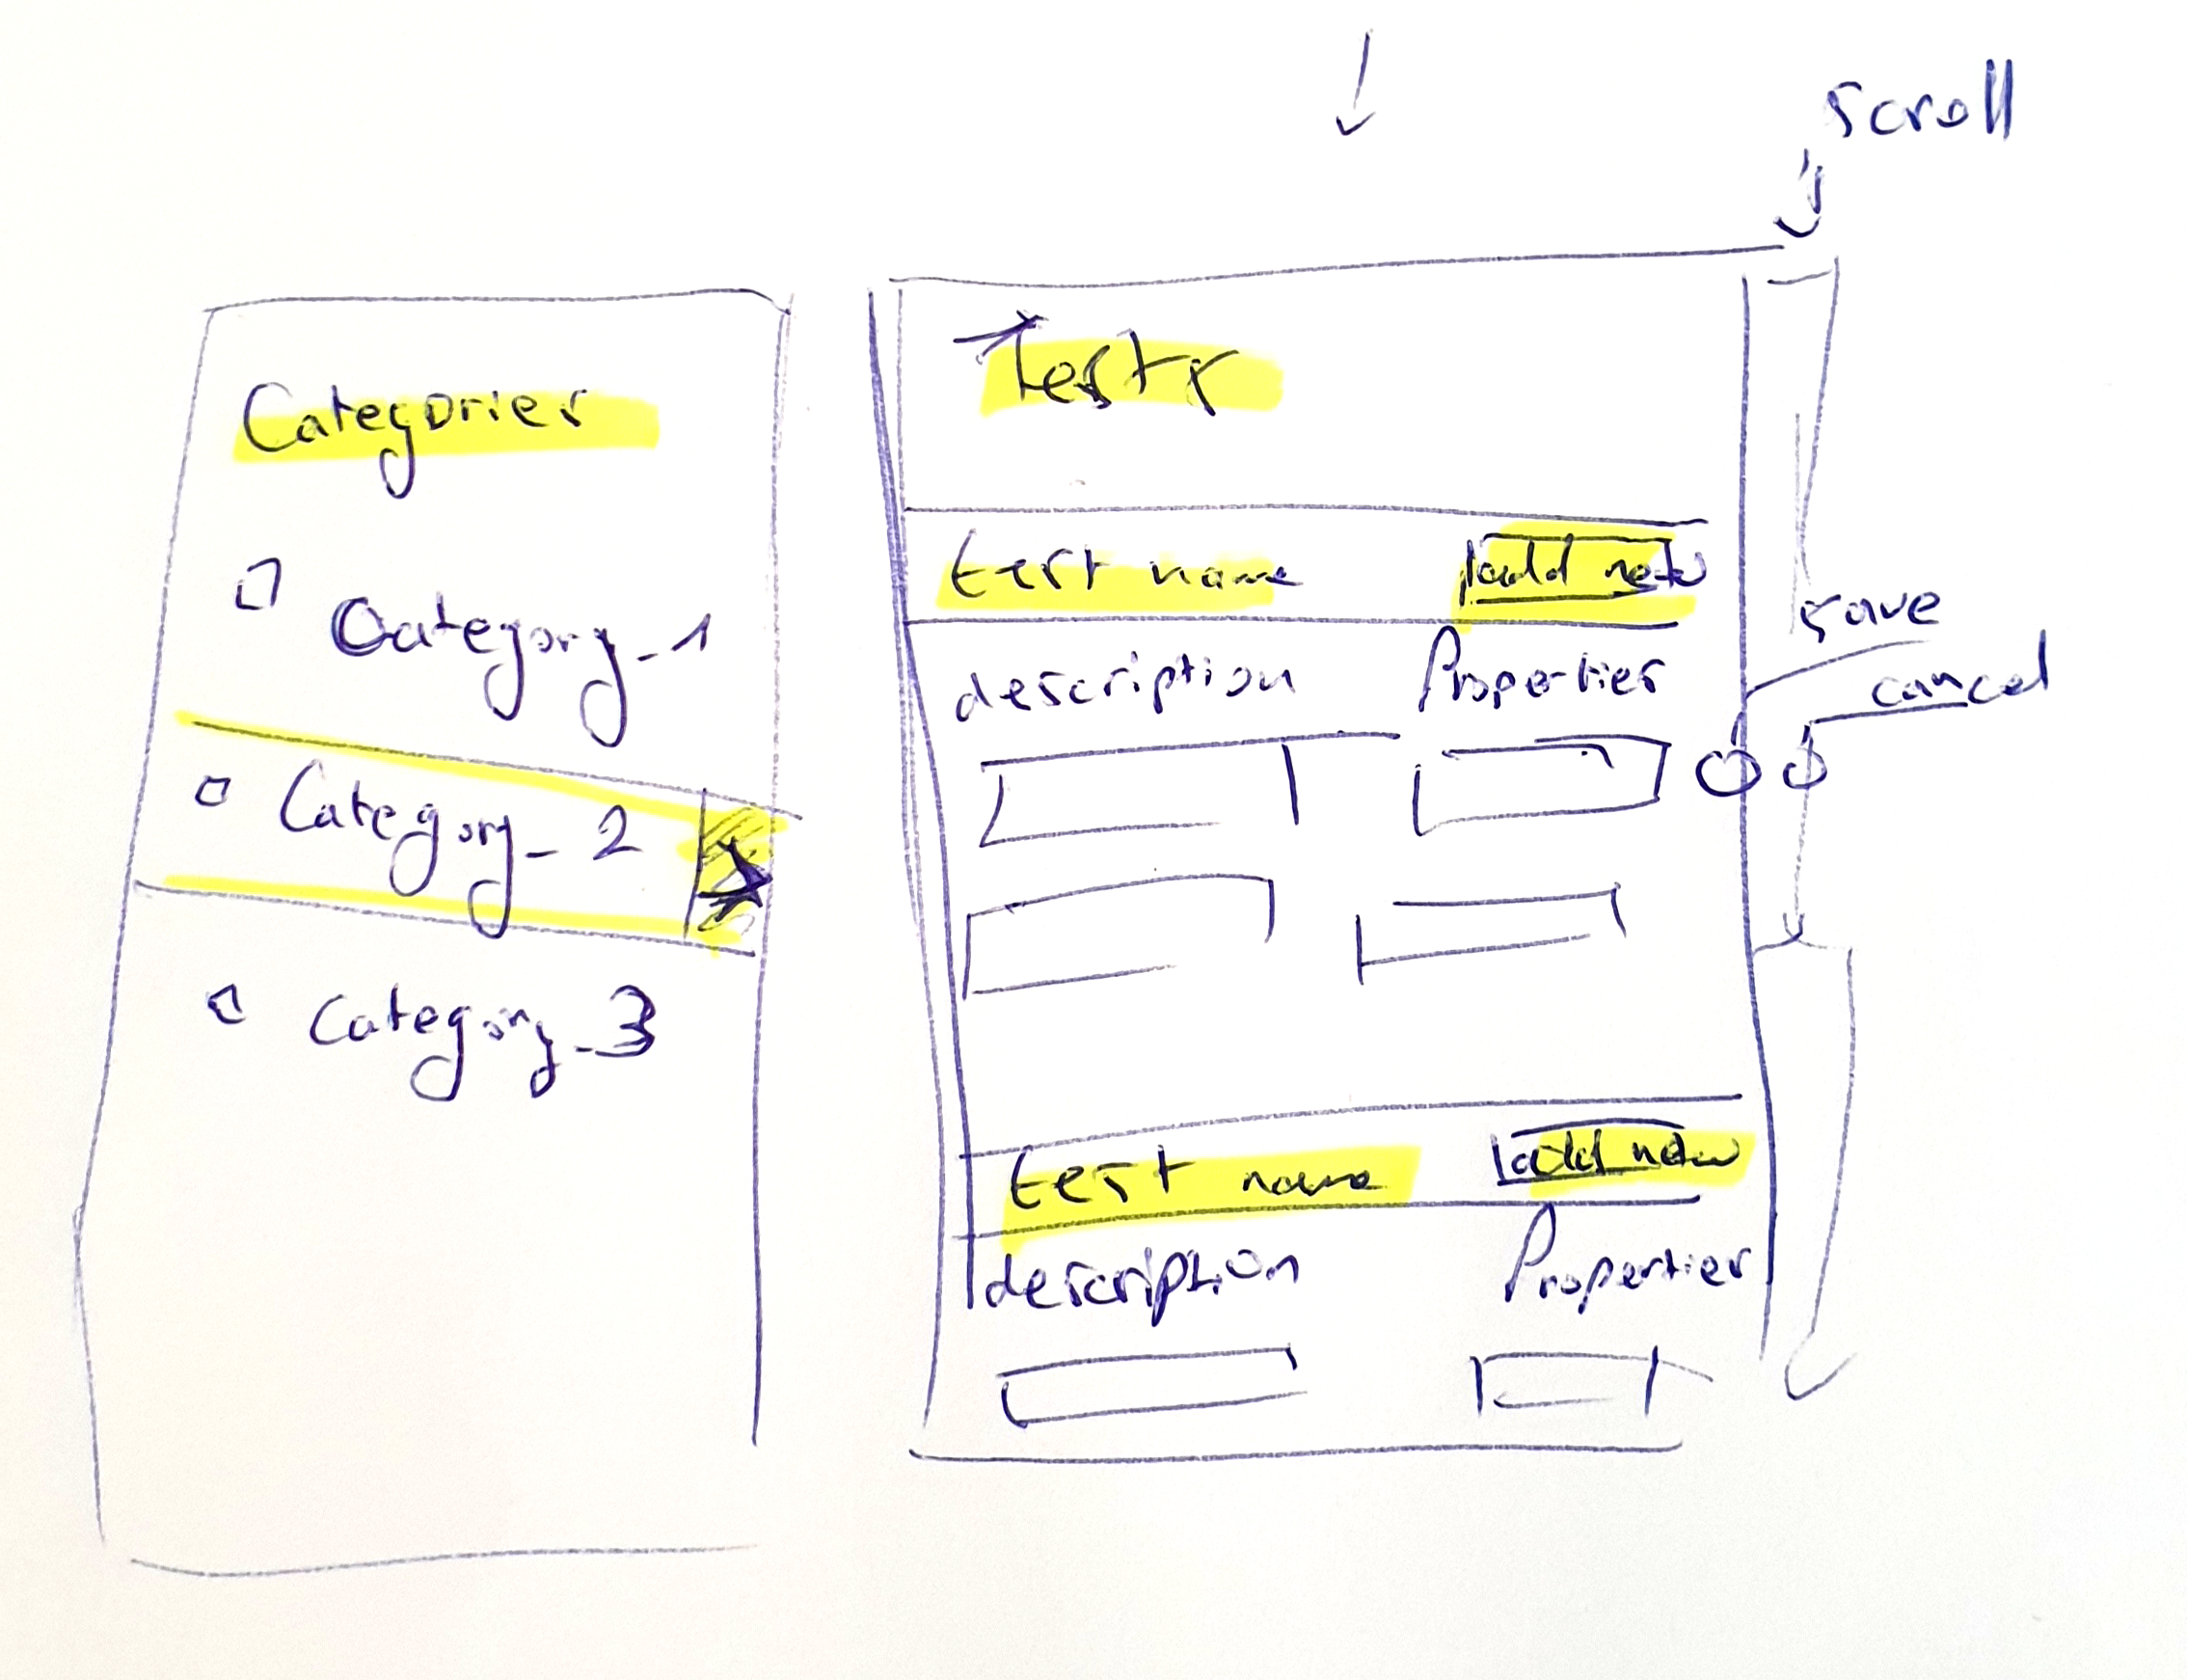 scroll
Categories
Category_1
Category_2
Category_3
Tests
test name add new
description Properties
save
cancel
test name add new
description Properties